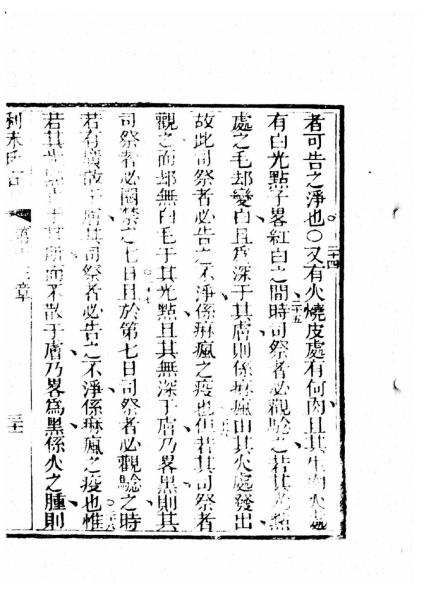 者可告之淨也○又有火燒皮處有何肉且其生肉火處
二十四
有白光點子畧紅白之間時司祭者必觀驗之若其光點
二十五
處之毛却變白且為深于其膚則係痳瘋由其火處發出
故此司祭者必告之不淨係痳瘋之疫也但若其司祭者
觀之而却無白毛于其光點且其無深于膚乃畧黑則其
司祭者必關禁之七日且於第七日司祭者必觀驗之時
若有廣散于膚其司祭者必告之不淨係痳瘋之疫也惟
若其光點于其所而不散于膚乃畧為黑係火之腫則
利未氏古 第十三章 三十